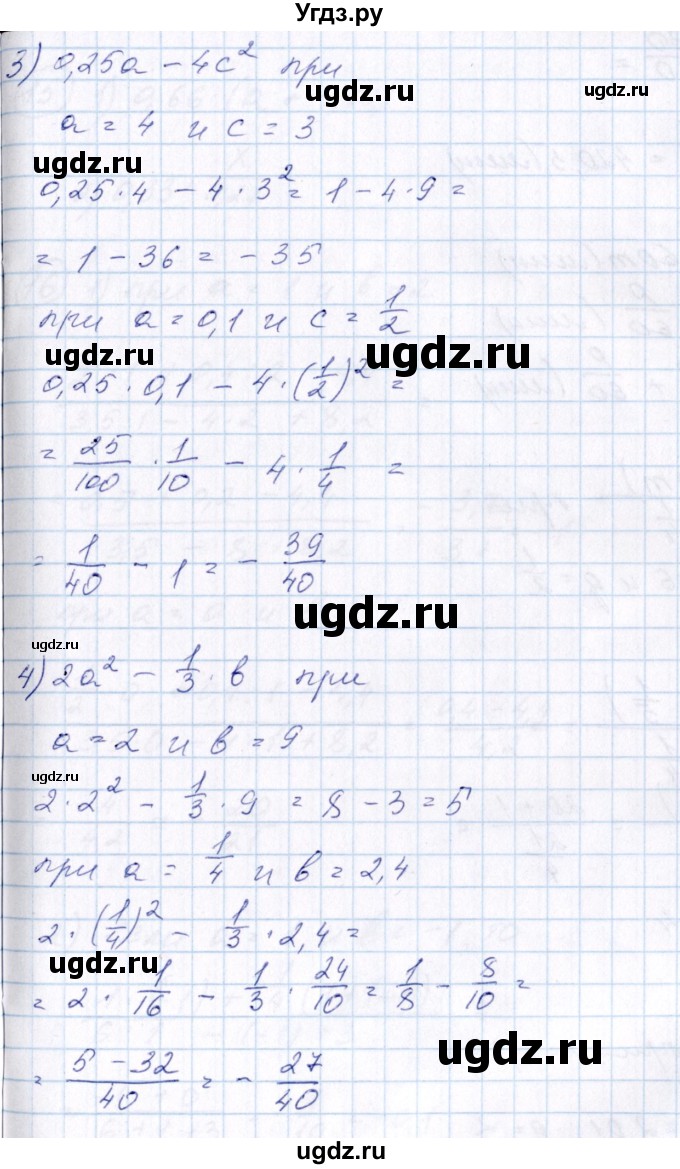 Угдз.ру
3) 0,25a − 4c² при
ugdz.ru
a = 4 и c = 3
ugdz.ru
0,25 · 4 − 4 · 3² = 1 − 4 · 9 =
= 1 − 36 = − 35
при a = 0,1 и c = 1/2
ugdz.ru
ugdz.ru
0,25 · 0,1 − 4 · (1/2)² =
= 25/100 · 1/10 − 4 · 1/4 =
= 1/40 − 1 = − 39/40
ugdz.ru
ugdz.ru
4) 2a² − 1/3 · в при
a = 2 и в = 9
ugdz.ru
2 · 2² − 1/3 · 9 = 8 − 3 = 5
при a = 1/4 и в = 2,4
2 · (1/4)² − 1/3 · 2,4 =
ugdz.ru
= 2 · 1/16 − 1/3 · 24/10 = 1/8 − 8/10 =
ugdz.ru
= 5 − 32/40 = − 27/40
ugdz.ru